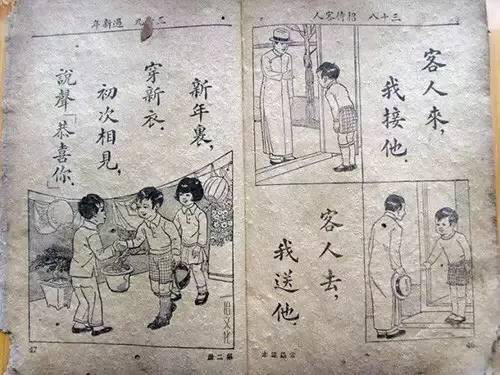 三十八 招待客人
客人來，
我接他．
客人去，
我送他．
46
過新年
新年裏，
穿新衣．
初次相見，
說聲「恭喜你」．
47